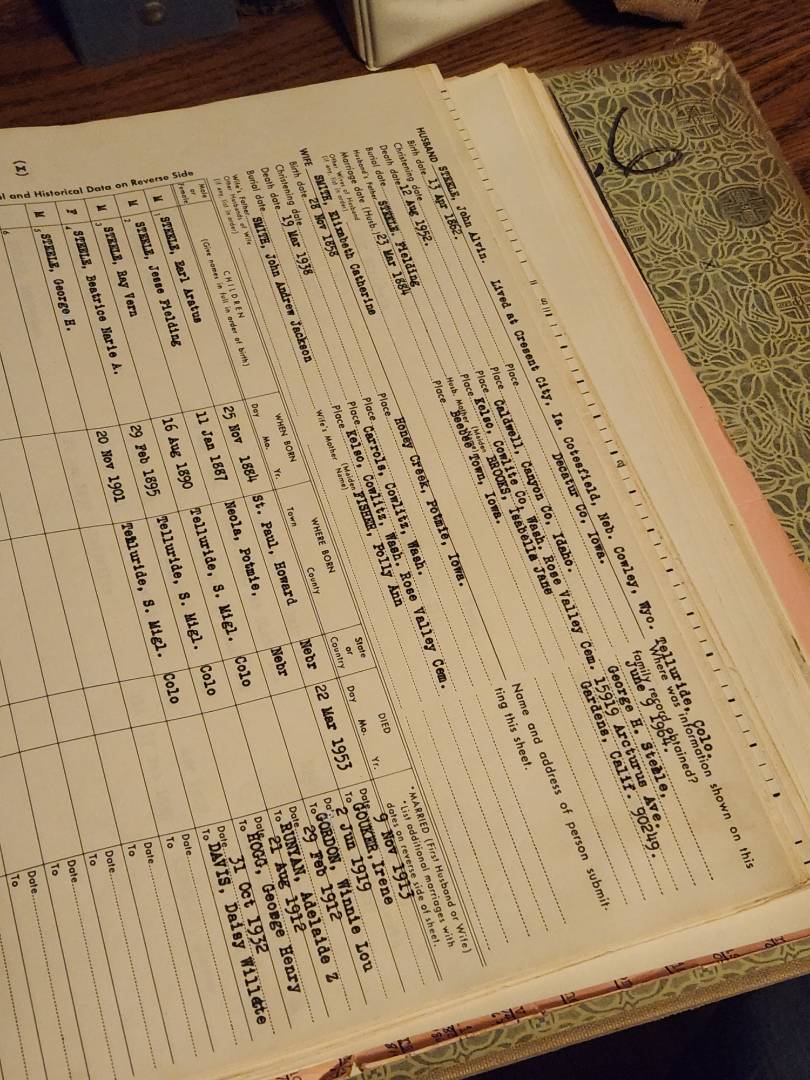 6
HUSBAND STEELE, John Alvin. Lived at Cresent City, Ia. Cotesfield, Neb. Cowley, Wyo. Telluride, Colo.
Birth date 13 Apr 1862. Place Decatur Co, Iowa.
Christening date Place
Death date 12 Aug 1952. Place Caldwell, Canyon Co, Idaho.
Burial date Place Kelso, Cowlite Co, Wash. Rose Valley Cem.
Husband's Father STEELE, Fielding Husb. Mother (Maiden Name) BROOKS, Isabella Jane
Marriage date (Husb. 23 Mar 1884 Place Beebee Town, Iowa.
Other Wives of Husband
(if any, list in order)
Where was information shown on this
family record obtained?
June 9 1964.
George H. Steele,
15919 Arcturus Ave.
Gardena, Calif. 90249.
WIFE SMITH, Elizabeth Catherine
Birth date 28 Nov 1858 Place Honey Creek, Potmie, Iowa.
Christening date Place
Death date 19 Mar 1938 Place Carrols, Cowlitz, Wash.
Burial date Place Kelso, Cowlitz, Wash. Rose Valley Cem.
Wife's Father SMITH, John Andrew Jackson Wife's Mother (Maiden Name) FISHER, Polly Ann
Other Husbands of Wife
(if any, list in order)
Name and address of person submit-
ting this sheet.
Male or Female
CHILDREN
(Give names in full in order of birth)
WHEN BORN
Day Mo. Yr.
WHERE BORN
Town County State or Country
DIED
Day Mo. Yr.
*MARRIED (First Husband or Wife)
*List additional marriages with
dates on reverse side of sheet.
M STEELE, Earl Aratus 25 Nov 1884 St. Paul, Howard Nebr 22 Mar 1953 Date 9 Nov 1913
To GOUKER, Irene
M 2 STEELE, Jesse Fielding 11 Jan 1887 Neola, Potmie, Nebr Date 2 Jun 1919
To GORDON, Winnie Lou
M 3 STEELE, Ray Vern 16 Aug 1890 Telluride, S. Migl. Colo Date 29 Feb 1912
To RUNYAN, Adelaide Z
F 4 STEELE, Beatrice Marie A. 29 Feb 1895 Telluride, S. Migl. Colo Date 21 Aug 1912
To HOGG, George Henry
M 5 STEELE, George H. 20 Nov 1901 Telluride, S. Migl. Colo Date 31 Oct 1932
To DAVIS, Daisy Willette
6 Date
To
Date
To
Date
To
Date
To
Date
To
(X)
l and Historical Data on Reverse Side